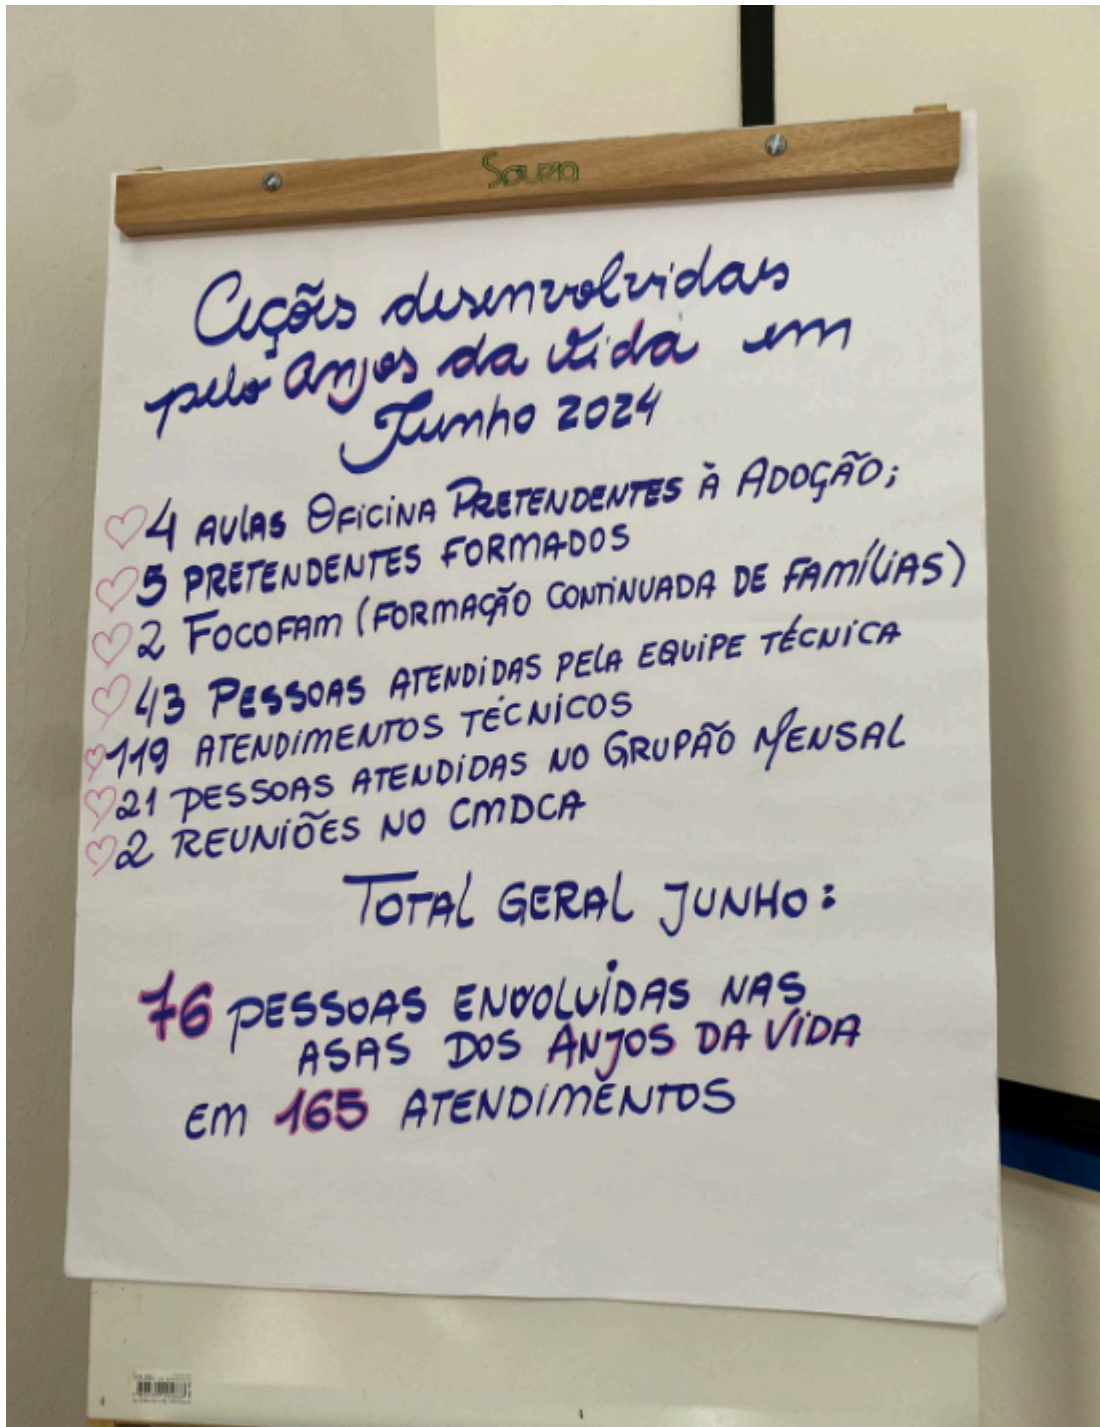 Souza
Ações desenvolvidas
pelo Anjos da Vida em
Junho 2024
4 AULAS OFICINA PRETENDENTES À ADOÇÃO;
5 PRETENDENTES FORMADOS
2 FOCOFAM (FORMAÇÃO CONTINUADA DE FAMÍLIAS)
43 PESSOAS ATENDIDAS PELA EQUIPE TÉCNICA
119 ATENDIMENTOS TÉCNICOS
21 PESSOAS ATENDIDAS NO GRUPÃO MENSAL
2 REUNIÕES NO CMDCA
TOTAL GERAL JUNHO:
76 PESSOAS ENVOLVIDAS NAS
ASAS DOS ANJOS DA VIDA
EM 165 ATENDIMENTOS